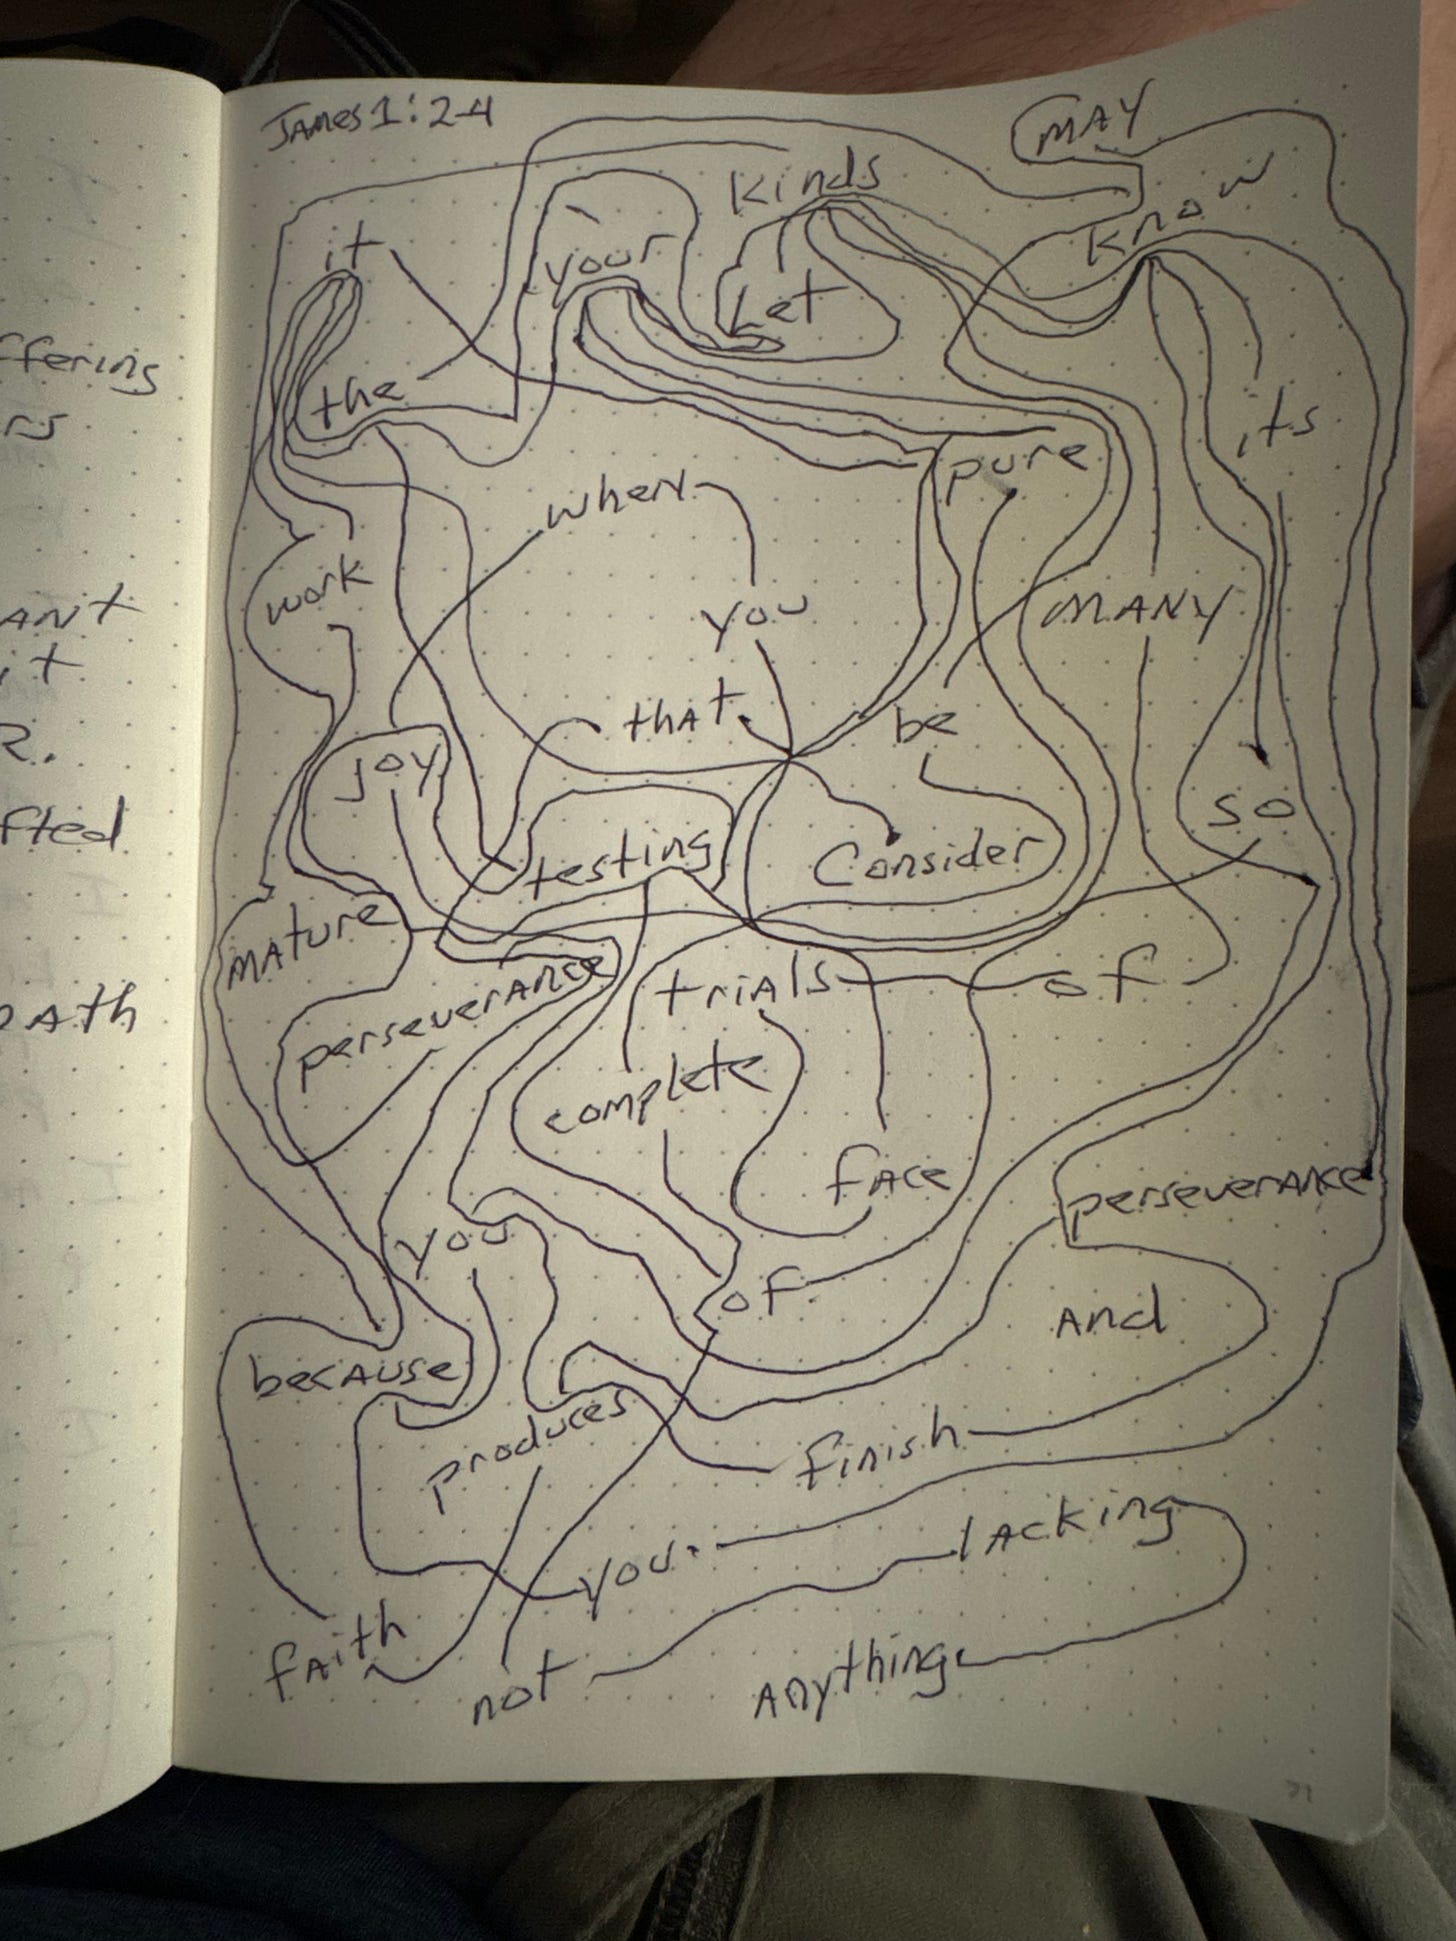 James 1:2-4
MAY
kinds
know
it
your
Let
ffering
the
its
rs
pure
when
work
MANY
ANT
you
it
that
be
R.
joy
so
fted
testing
Consider
MATURE
trials
of
perseverance
PATH
complete
face
perseverance
you
of
And
because
produces
finish
lacking
you.
faith
not
Anything.